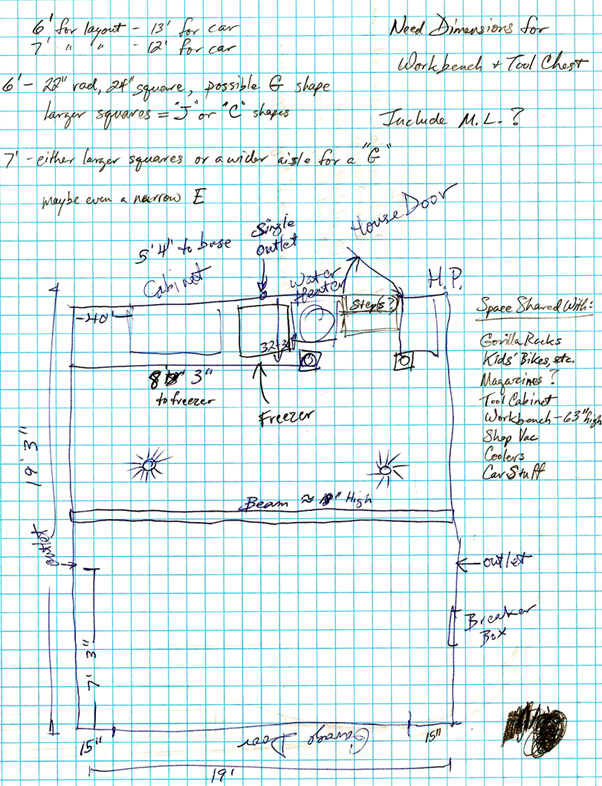 6' for layout - 13' for car
7' " " - 12' for car
6' - 22" rad, 24" square, possible G shape
larger squares = "J" or "C" shapes
7' - either larger squares or a wider aisle for a "G"
maybe even a narrow E
Need Dimensions for
Workbench + Tool Chest
Include M.L.?
5' 4" to base
Cabinet
Single
Outlet
Water
Heater
House Door
Step(s?)
H.P.
~40"
3" to freezer
Freezer
Space Shared With:
Gorilla Racks
Kids' Bikes, etc.
Magazines?
Tool Cabinet
Workbench - 63" high
Shop Vac
Coolers
Car Stuff
19' 3"
Beam ≈ High
outlet
outlet
Breaker
Box
7' 3"
15"
Garage Door
15"
19'